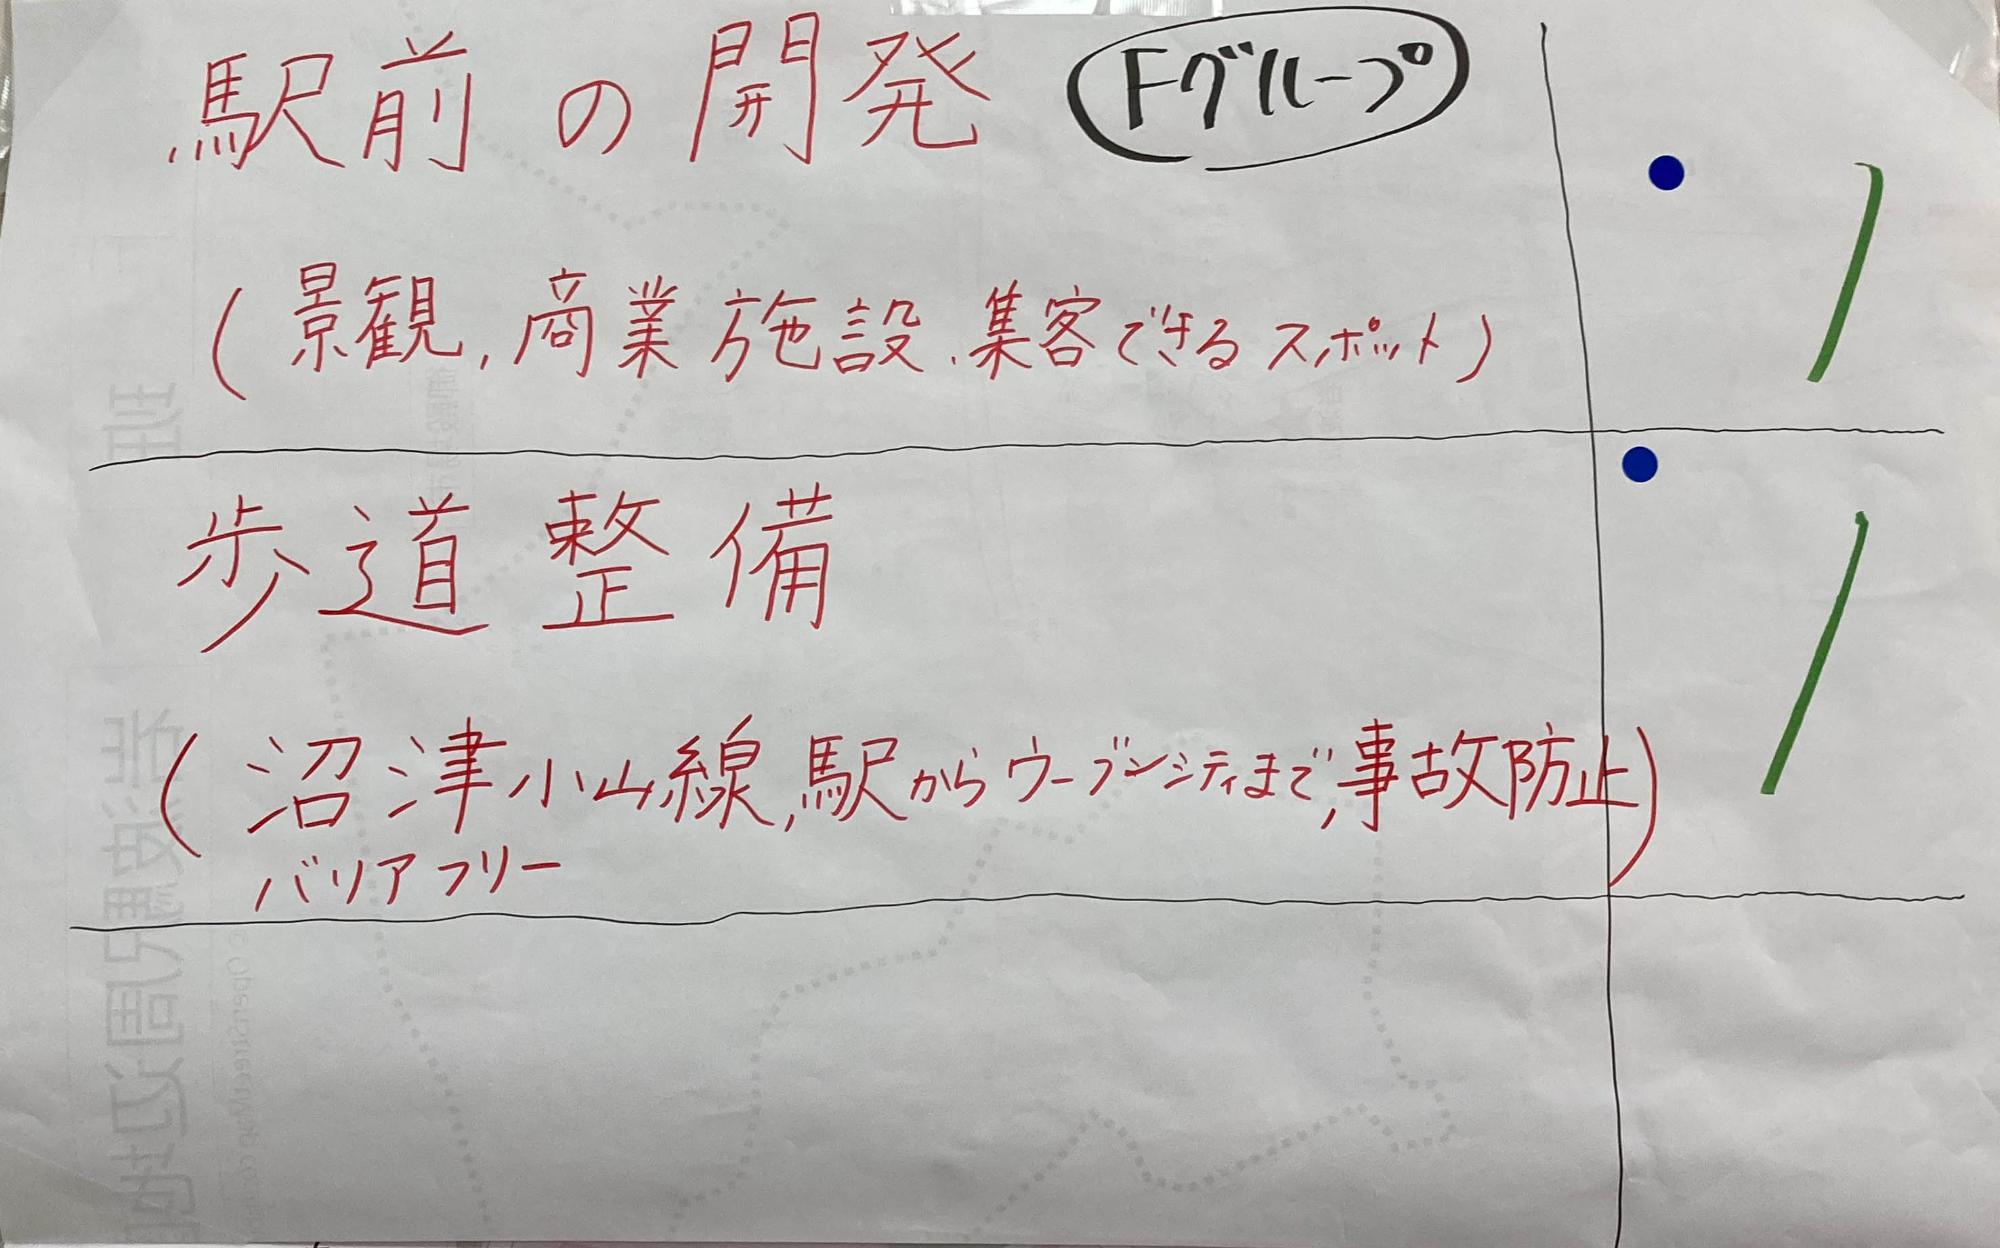 駅前の開発 Fグループ
(景観,商業施設、集客できるスポット)
歩道整備
(沼津小山線,駅からウーブンシティまで,事故防止)
バリアフリー